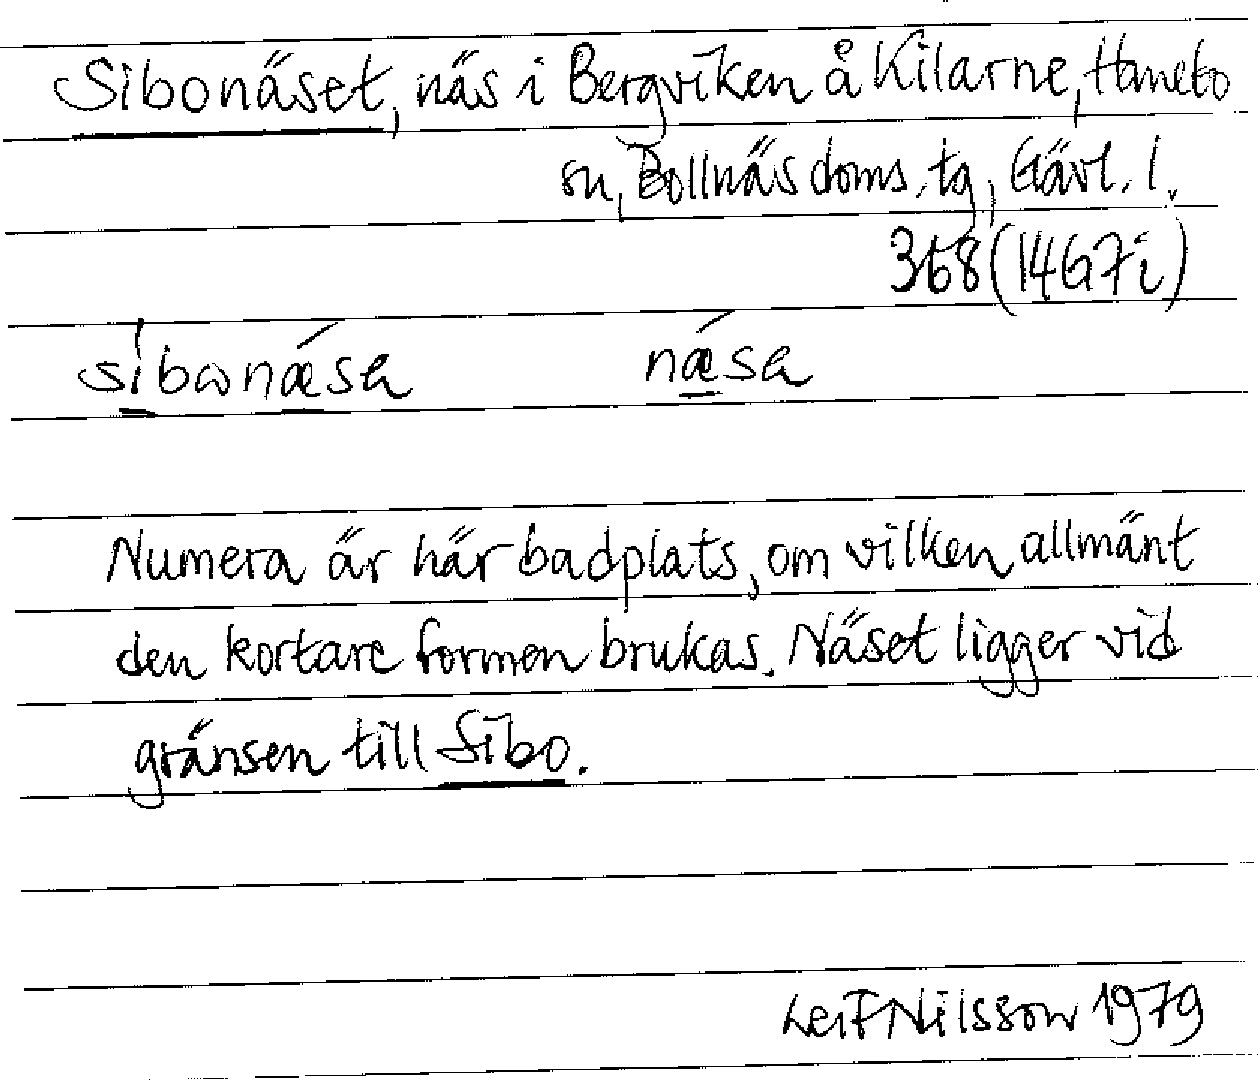 Sibonäset, näs i Bergviken å Kilarne, Hanebo
sn, Bollnäs doms. tg, Gävl. l.
368 (14G7i)
sibonæsa næsa
Numera är här badplats, om vilken allmänt
den kortare formen brukas. Näset ligger vid
gränsen till Sibo.
Leif Nilsson 1979